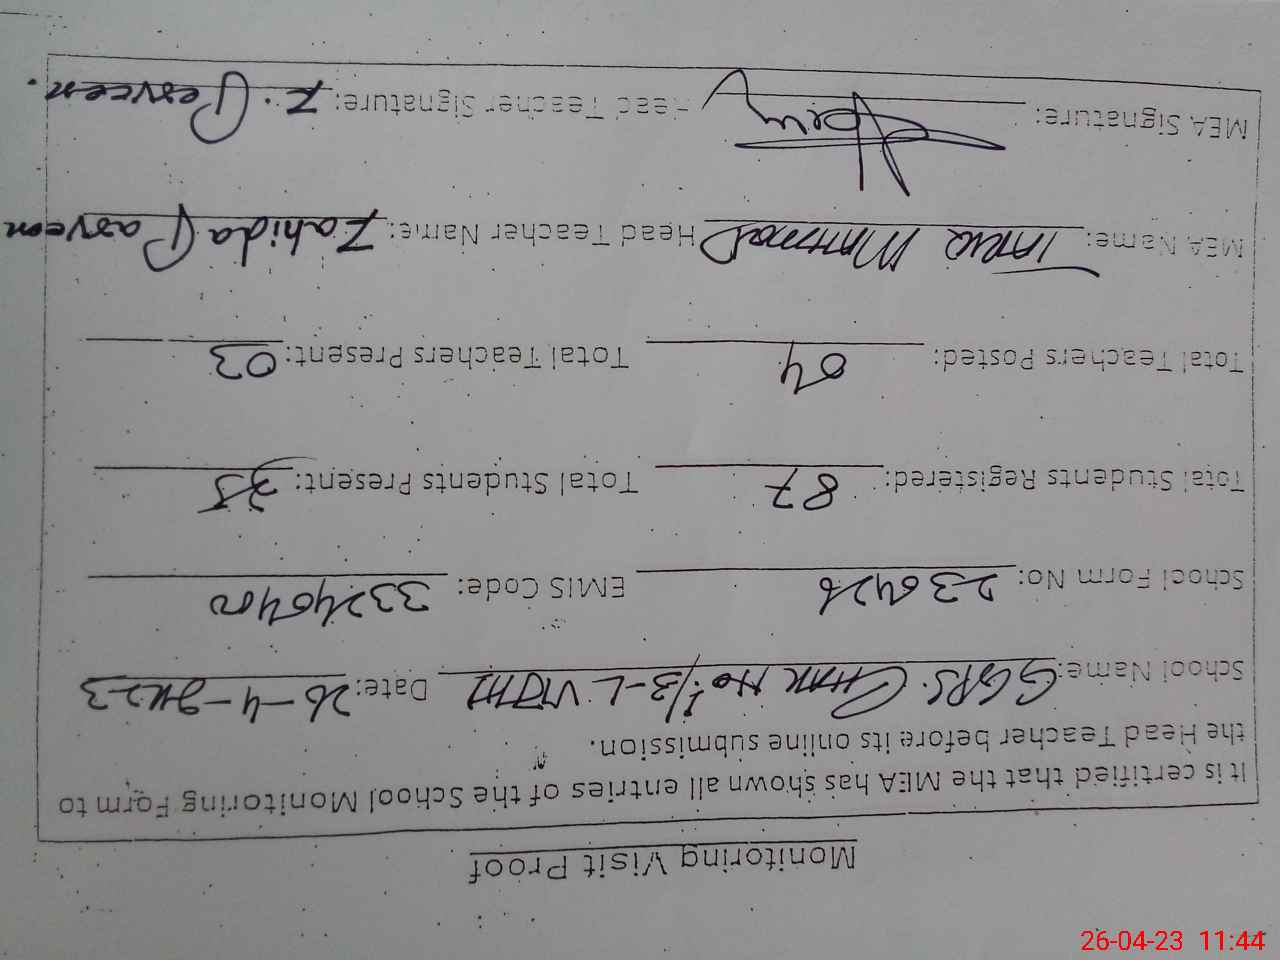 Monitoring Visit Proof
It is certified that the MEA has shown all entries of the School Monitoring Form to
the Head Teacher before its online submission.
School Name: GGPS. Chak No: /3-L Date: 26-4-2023
School Form No: 230426 EMIS Code: 33240400
Total Students Registered: 87 Total Students Present: 35
Total Teachers Posted: 04 Total Teachers Present: 03
MEA Name: TARIQ MAHMOOD Head Teacher Name: Zahida Parveen
MEA Signature: Head Teacher Signature: Z. Perveen.
26-04-23 11:44